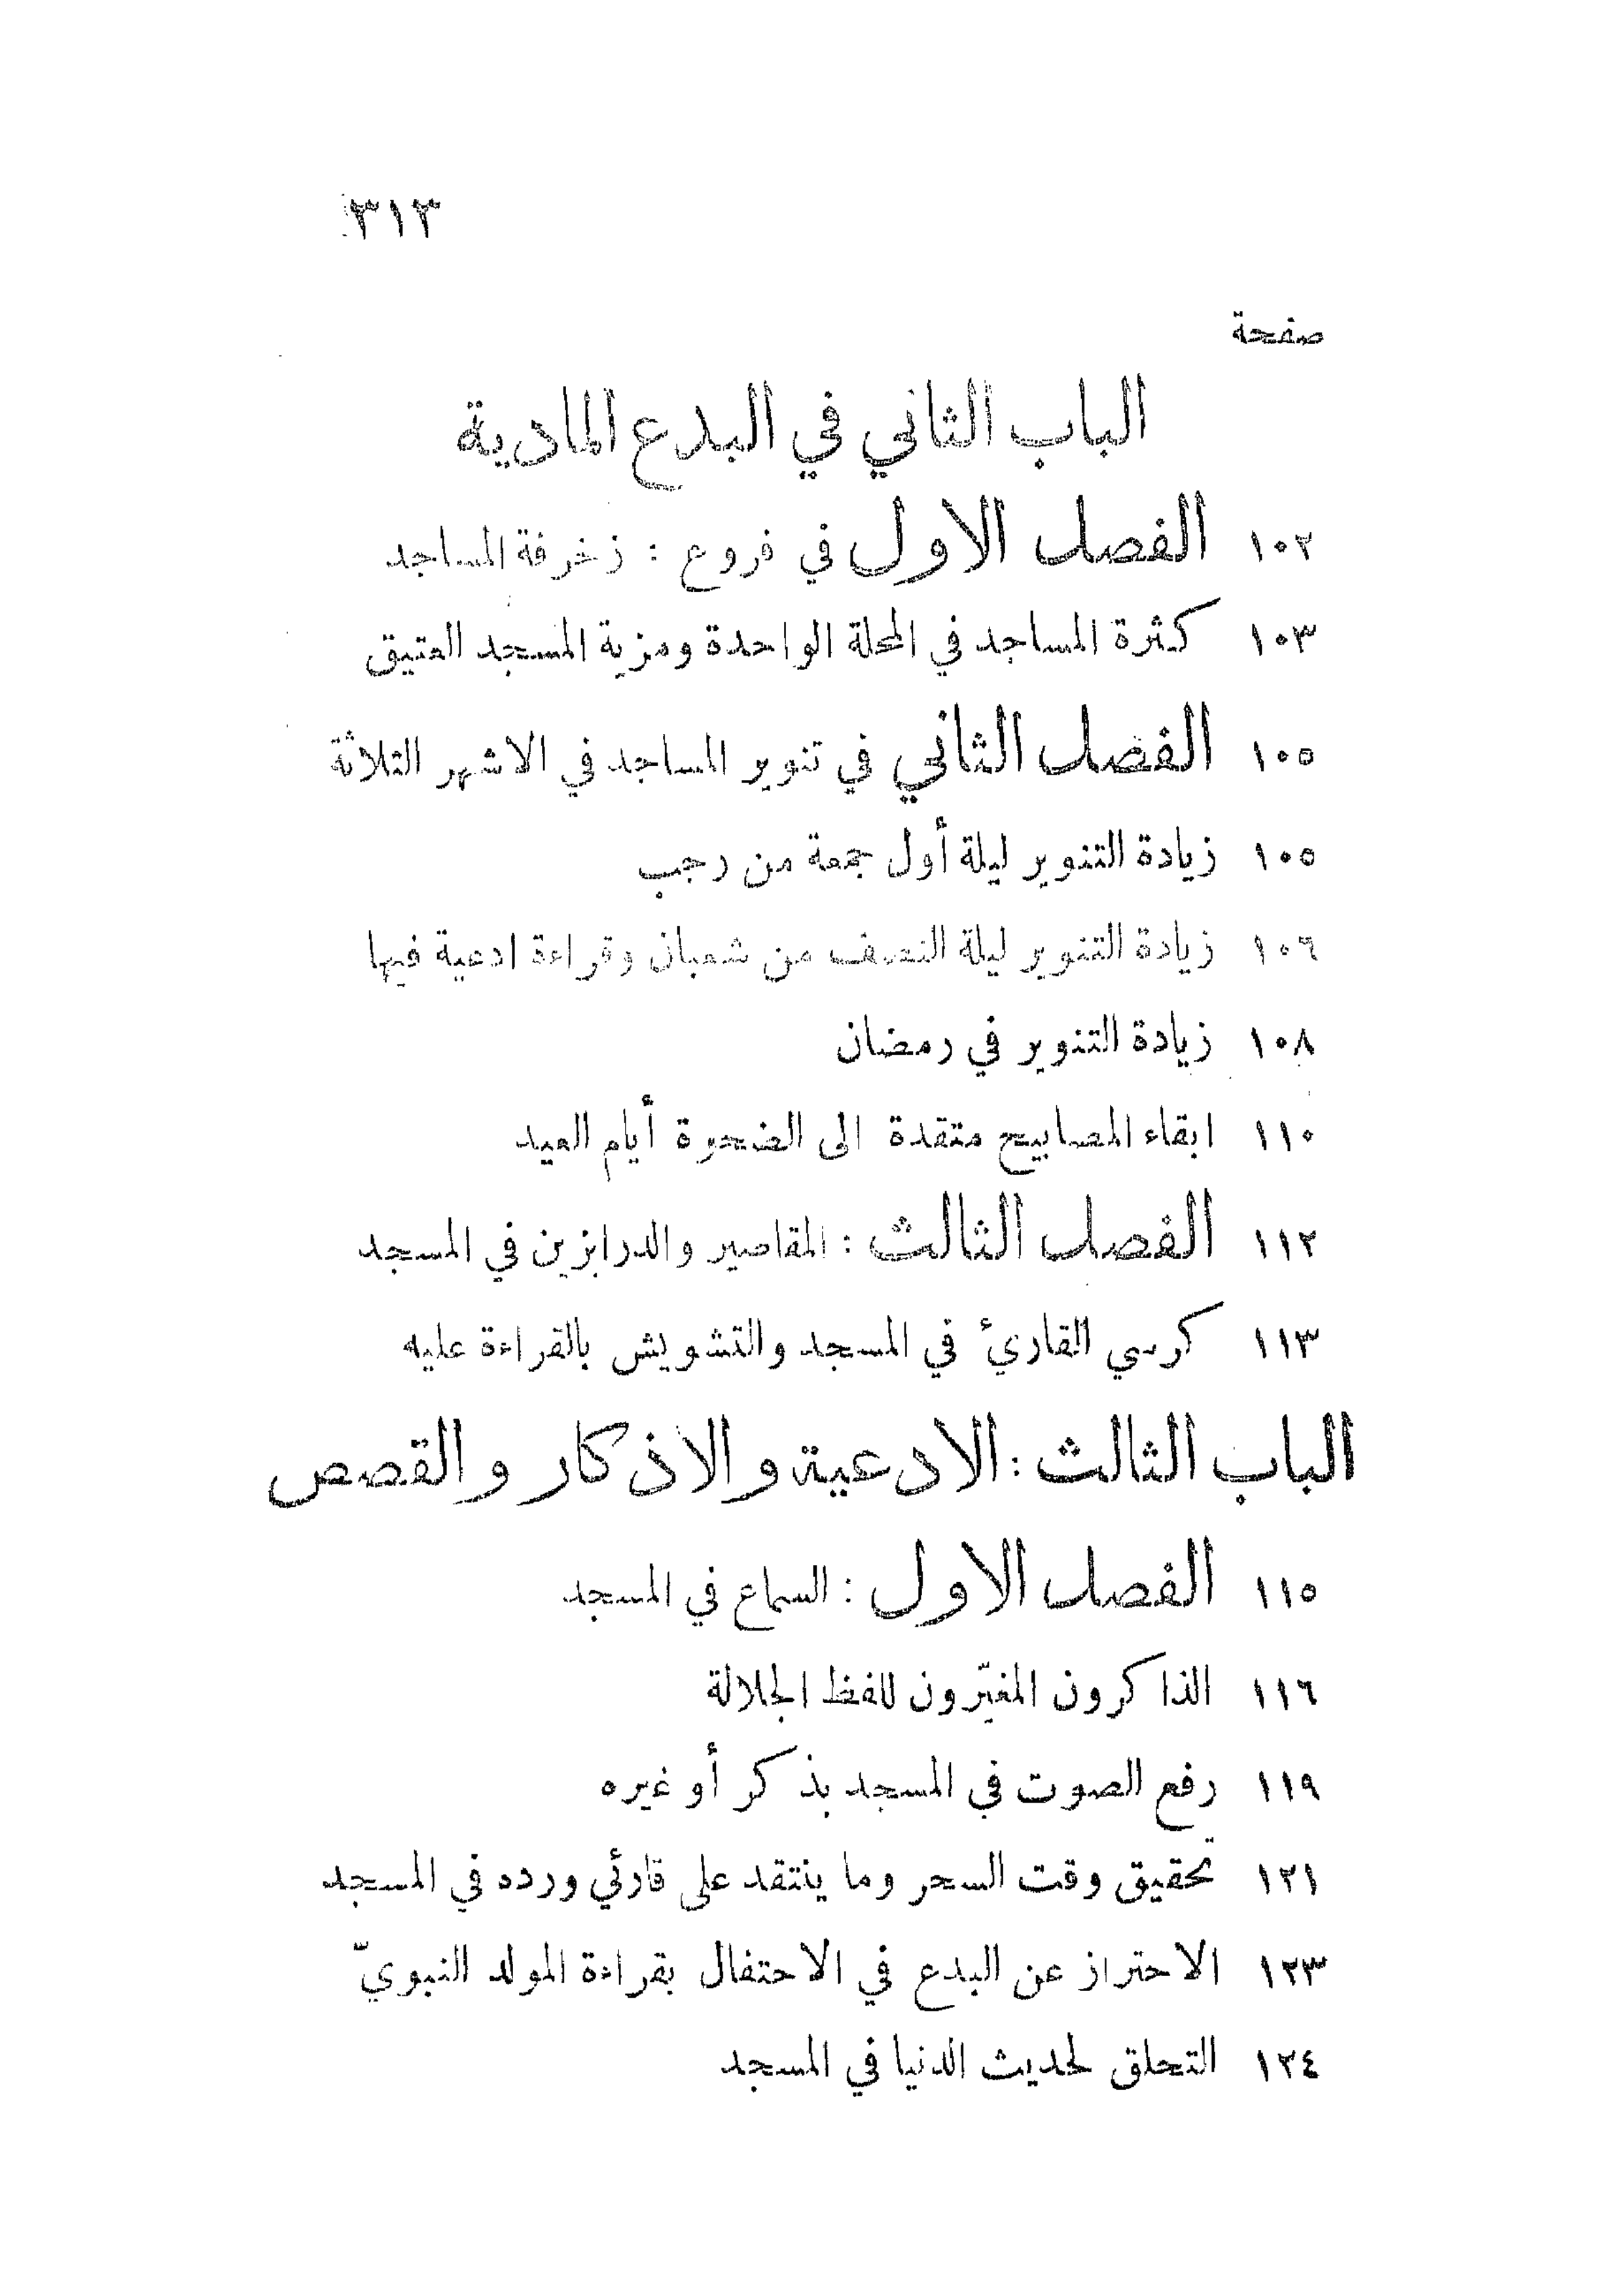 ٣١٣
صفحة
الباب الثاني في البدع المادية
١٠٢ الفصل الاول في فروع : زخرفة المساجد
١٠٣ كثرة المساجد في المحلة الواحدة ومزية المسجد العتيق
١٠٥ الفصل الثاني في تنوير المساجد في الاشهر الثلاثة
١٠٥ زيادة التنوير ليلة أول جمعة من رجب
١٠٦ زيادة التنوير ليلة النصف من شعبان وقراءة ادعية فيها
١٠٨ زيادة التنوير في رمضان
١١٠ ابقاء المصابيح متقدة الى الضحوة أيام العيد
١١٢ الفصل الثالث : المقاصير والدرابزين في المسجد
١١٣ كرسي القارئ في المسجد والتشويش بالقراءة عليه
الباب الثالث : الادعية والاذكار والقصص
١١٥ الفصل الاول : السماع في المسجد
١١٦ الذاكرون المغيّرون للفظ الجلالة
١١٩ رفع الصوت في المسجد بذكر أو غيره
١٢١ تحقيق وقت السحر وما ينتقد على قارئي ورده في المسجد
١٢٣ الاحتراز عن البدع في الاحتفال بقراءة المولد النبويّ
١٢٤ التحلق لحديث الدنيا في المسجد